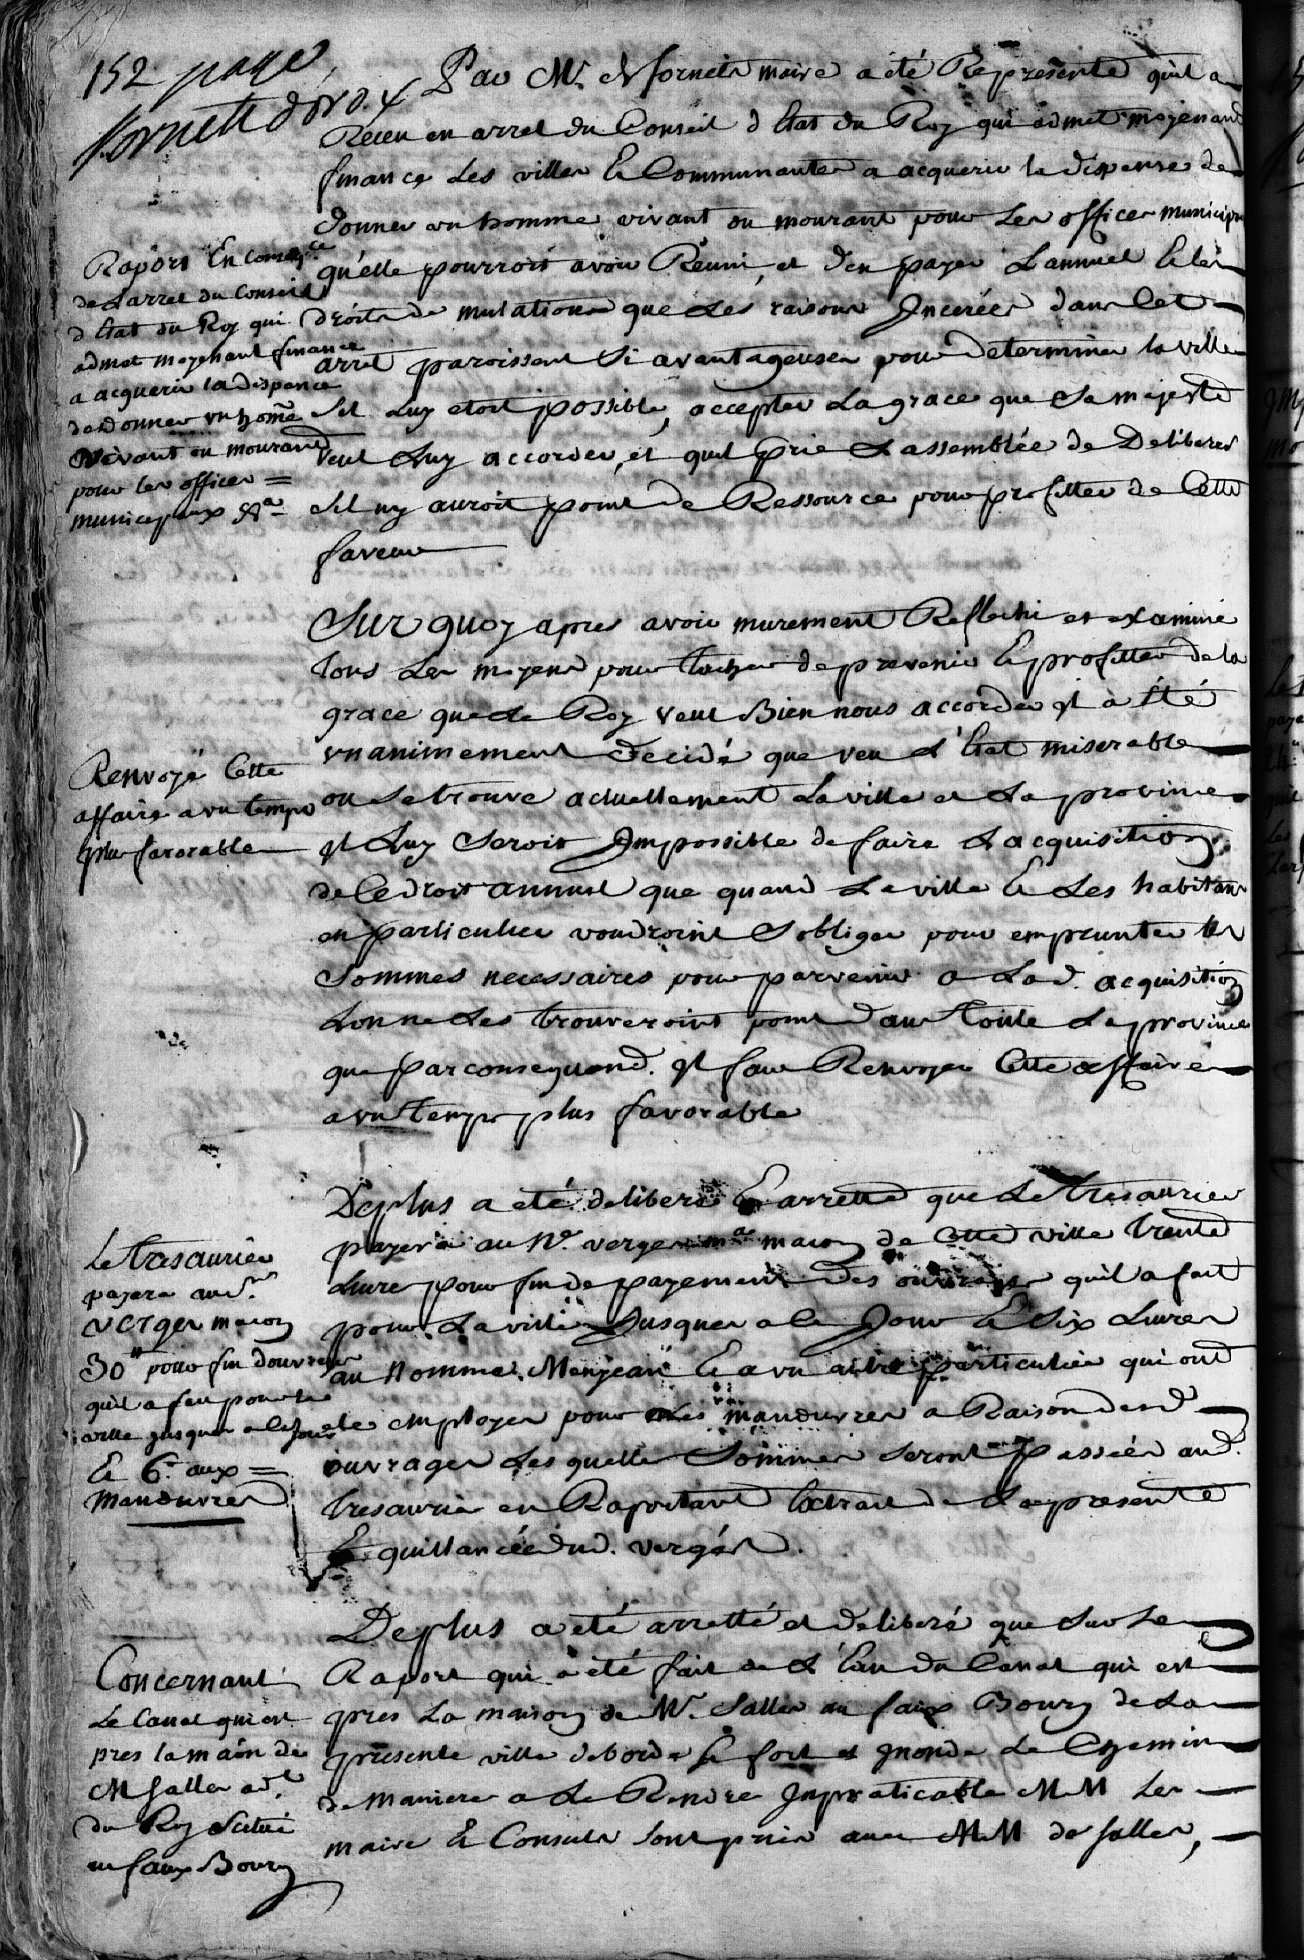 152 page
fornets
Par Mr. de fornets maire a été Représenté quil a
Receu un arret du Conseil d Etat du Roy qui admet moyenant
finance les villes & Communautes a acquerir la dispense de
donner un homme vivant ou mourant pour les offices municip
qu'elle pourroit avoir Réuni, et d'en payer L'annuel & les
droits de mutations que les raisons Incerées dans Cet
arret paroissent si avantageuses pour determiner la ville
sil Luy etoit possible, accepter La grace que sa majesté
veut Luy accorder, et quil prie L'assemblée de Deliberer
sil ny auroit point de Ressource pour profitter de Cette
faveur
Rapört En conseq.ce
de Larret du Conseil
d Etat du Roy qui
admet moyenant finance
a acquerir la dispence
de donner un home
vivant ou mourant
pour les offices =
municipaux &a
Sur quoy apres avoir murement Reflechi et examiné
tous les moyens pour tacher de prevenir & profitter de la
grace que le Roy veut Bien nous accorder Il à été
unanimement decidé que veu l'Etat miserable
ou se trouve actuellement La ville et La province
Il Luy seroit Impossible de faire L acquisition
de Ce droit annuel que quand La ville & Les habitans
en particulier voudroint s obliger pour emprunter les
sommes necessaires pour parvenir a Lad. acquisition
Lon ne les trouveroint point dans toute La province
que par consequand. Il faut Renvoyer Cette affaire
a un temps plus favorable
Renvoyé Cette
affaire a un temps
plus favorable
De plus a eté deliberé & arretté que Le tresaurier
payera au Sr. verger me macon de Cette ville trente
Livre pour fin de payement des ouvrages quil a fait
pour La ville Jusques a Ce Jour & six Livres
au nommé Menjean & a un autre particulier qui ont
eté employes pour Les manoeuvres a Raison desd.
ouvrages Lesquelles sommes seront passées aud.
tresaurier en Raportant Lextrait de La presente
& quittancée dud. vergér.
Le tresaurier
payera aud. Sr.
verger macon
30 ll pour fin douvrage
quil a fait pour la
ville jusques a Ce Jour
& 6 ll aux =
manoeuvres
De plus a eté arretté et deliberé que sur Le
Raport qui a eté fait de L'Eau du Canal qui est
pres La maison de Mr. Salles au faux Bourg de La
presente ville deborde si fort et Inonde Le Chemin
de maniere a Le Rendre Inpraticable M M Les
maire & Consuls sont priés avec M M de salles,
Concernant
Le Canal qui est
pres la maon de
M salles adt.
du Roy scitué
au faux Bourg